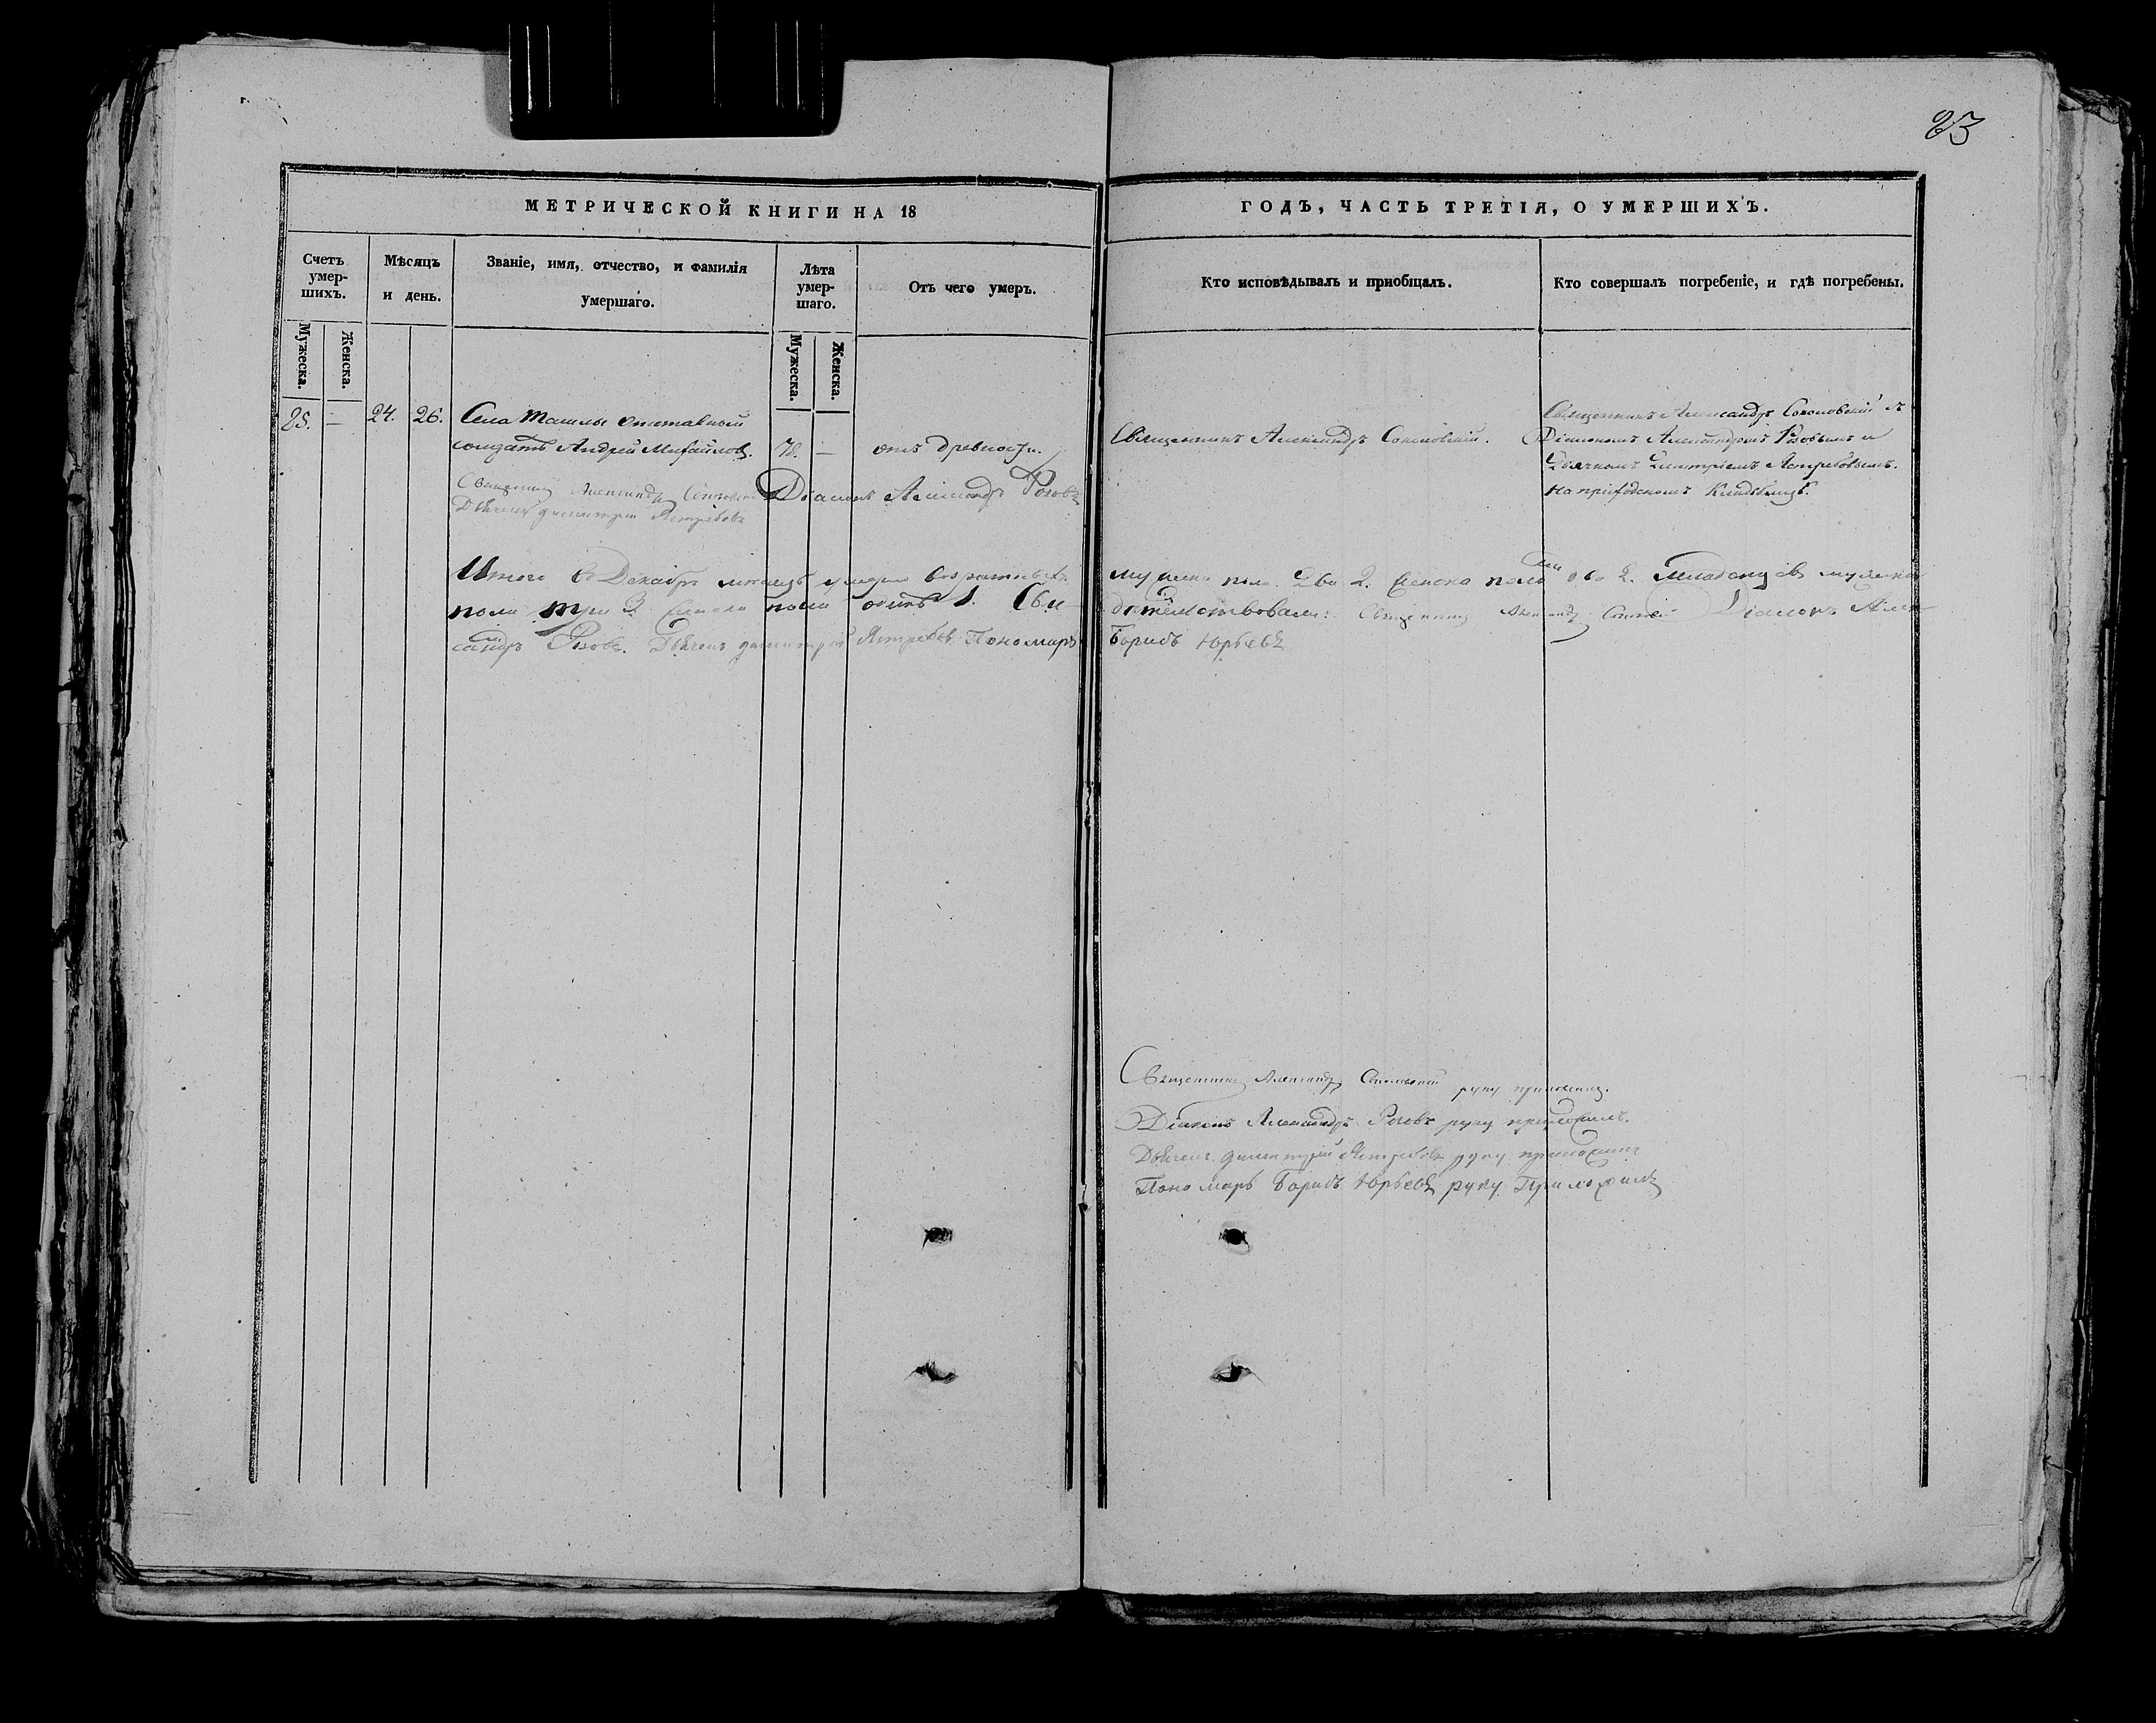 23
МЕТРИЧЕСКОЙ КНИГИ НА 18
ГОДЪ, ЧАСТЬ ТРЕТІЯ, О УМЕРШИХЪ.
Счетъ умер-шихъ.
Мѣсяцъ и день.
Званіе, имя, отчество, и фамилія умершаго.
Лѣта умер-шаго.
Отъ чего умеръ.
Кто исповѣдывалъ и пріобщалъ.
Кто совершалъ погребеніе, и гдѣ погребены.
Мужеска.
Женска.
Мужеска.
Женска.
85. — 24. 26. Села Ташлы отставный
солдатъ Андрей Михайловъ. 78. — отъ древности.
Священникъ Александръ Соколовскій.
Священникъ Александръ Соколовскій съ
Діакономъ Александромъ Розовымъ и
Дьячкомъ Димитріемъ Ястребовымъ.
на приходскомъ кладбищѣ.
Священникъ Александръ Соколовскій Діаконъ Александръ Розовъ
Дьячекъ Димитрій Ястребовъ
Итого въ Декабрѣ мѣсяцѣ умерло возрастныхъ мужеска пола два 2. женска пола две 2. Младенцовъ мужеска
пола три 3. женска пола одинъ 1. Сви-дѣтельствовали: Священникъ Александръ Діаконъ Алек-
сандръ Розовъ. Дьячекъ Димитрій Ястребовъ Пономарь Борисъ Юрьевъ
Священникъ Александръ Соколовскій руку приложилъ.
Діаконъ Александръ Розовъ руку приложилъ.
Дьячекъ Димитрій Ястребовъ руку приложилъ
Пономарь Борисъ Юрьевъ руку Приложилъ